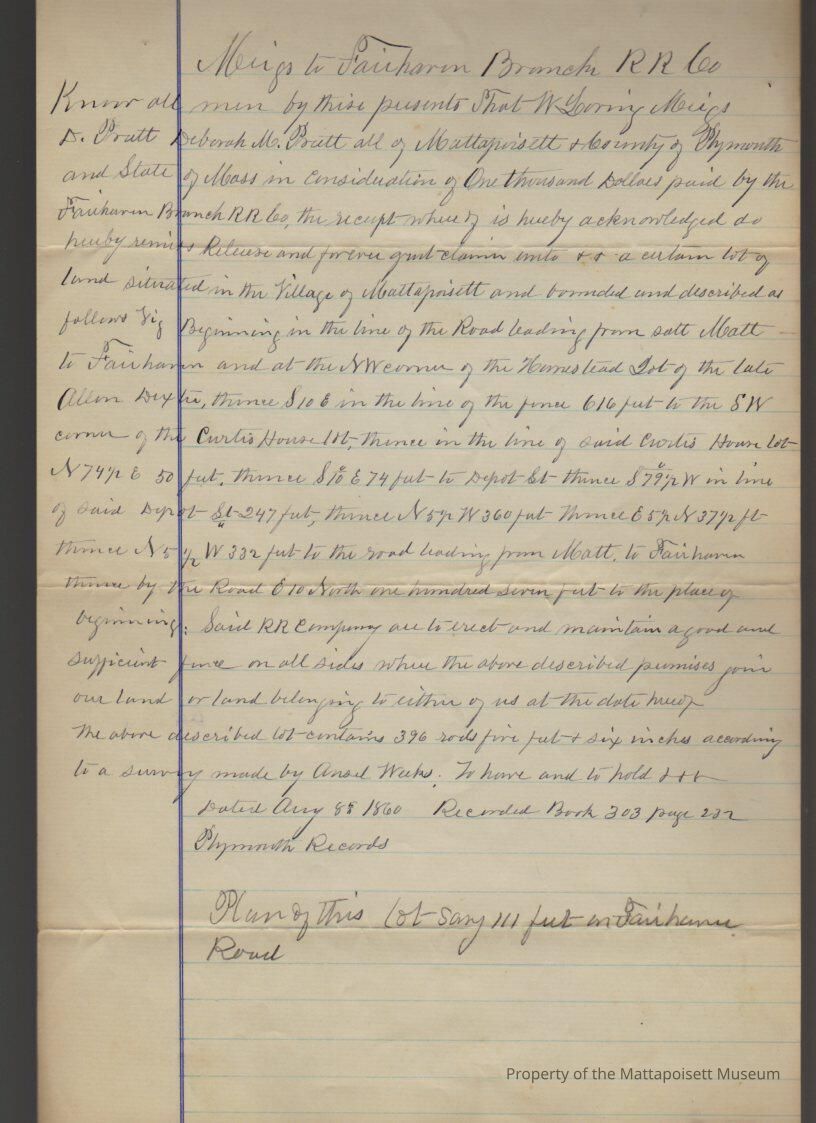 Meigs to Fairhaven Branch RR Co
Know all men by these presents That W Loring Meigs
D. Pratt Deborah M. Pratt all of Mattapoisett & County of Plymouth
and State of Mass in consideration of One thousand Dollars paid by the
Fairhaven Branch RR Co, the receipt where of is hereby acknowledged do
hereby remiss Release and forever quit claim unto && a certain lot of
land situated in the Village of Mattapoisett and bounded and described as
follows Viz Beginning in the line of the Road leading from Matt
to Fairhaven and at the NW corner of the Homestead Lot of the late
Allen Dexter, thence S 10 E in the line of the fence 616 feet to the SW
corner of the Curtis House lot, thence in the line of said Curtis House lot
N 74 1/2 E 50 feet, thence S 10° E 74 feet to Depot St thence S 79° 1/2 W in line
of said Depot St 247 feet, thence N 5 1/2 W 360 feet thence E 5 1/2 N 37 1/2 ft
thence N 5 1/2 W 332 feet to the road leading from Matt. to Fairhaven
thence by the Road E 10 North one hundred seven feet to the place of
beginning: Said RR Company are to erect and maintain a good and
sufficient fence on all sides where the above described premises join
our land or land belonging to either of us at the date hereof
The above described lot contains 396 rods five feet & six inches according
to a survey made by Ansel Weeks. To have and to hold &&&
Dated Aug 8th 1860 Recorded Book 303 page 232
Plymouth Records
Plan of this lot say 111 feet on Fairhaven
Road
Property of the Mattapoisett Museum